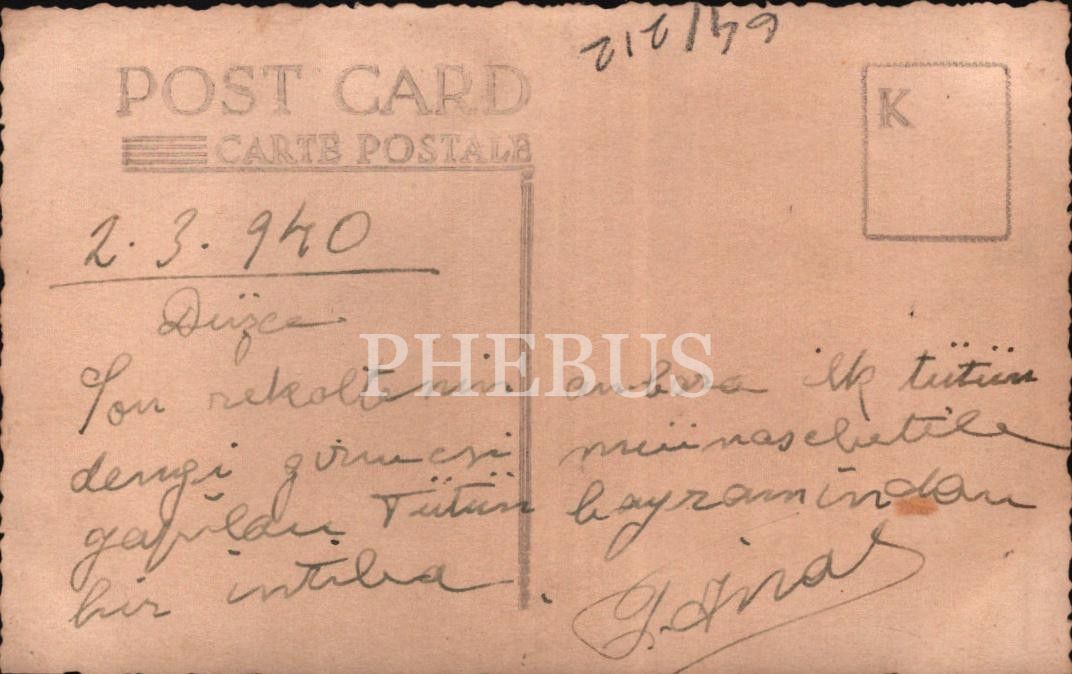 POST CARD
CARTE POSTALE
K
2.3.940
Düzce
PHEBUS
Son rekoltenin anbara ilk tütün
dengi girmesi münasebetile
yapılan Tütün bayramından
bir intiba.